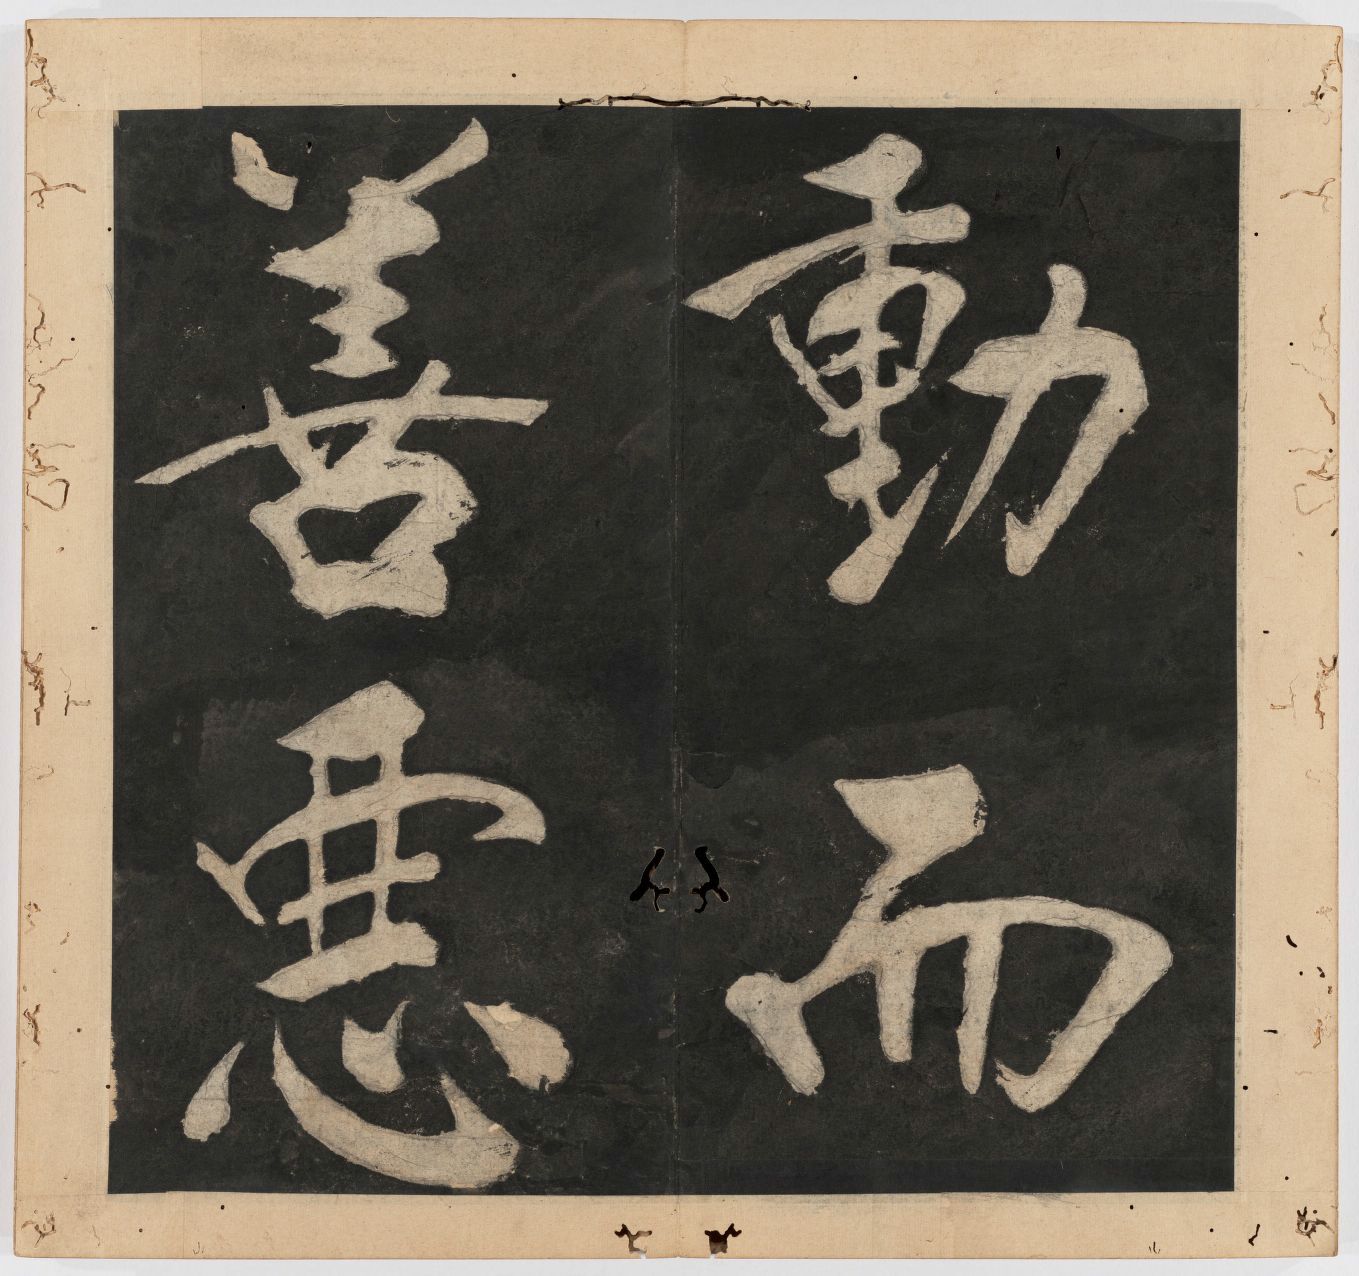 動而
善惡